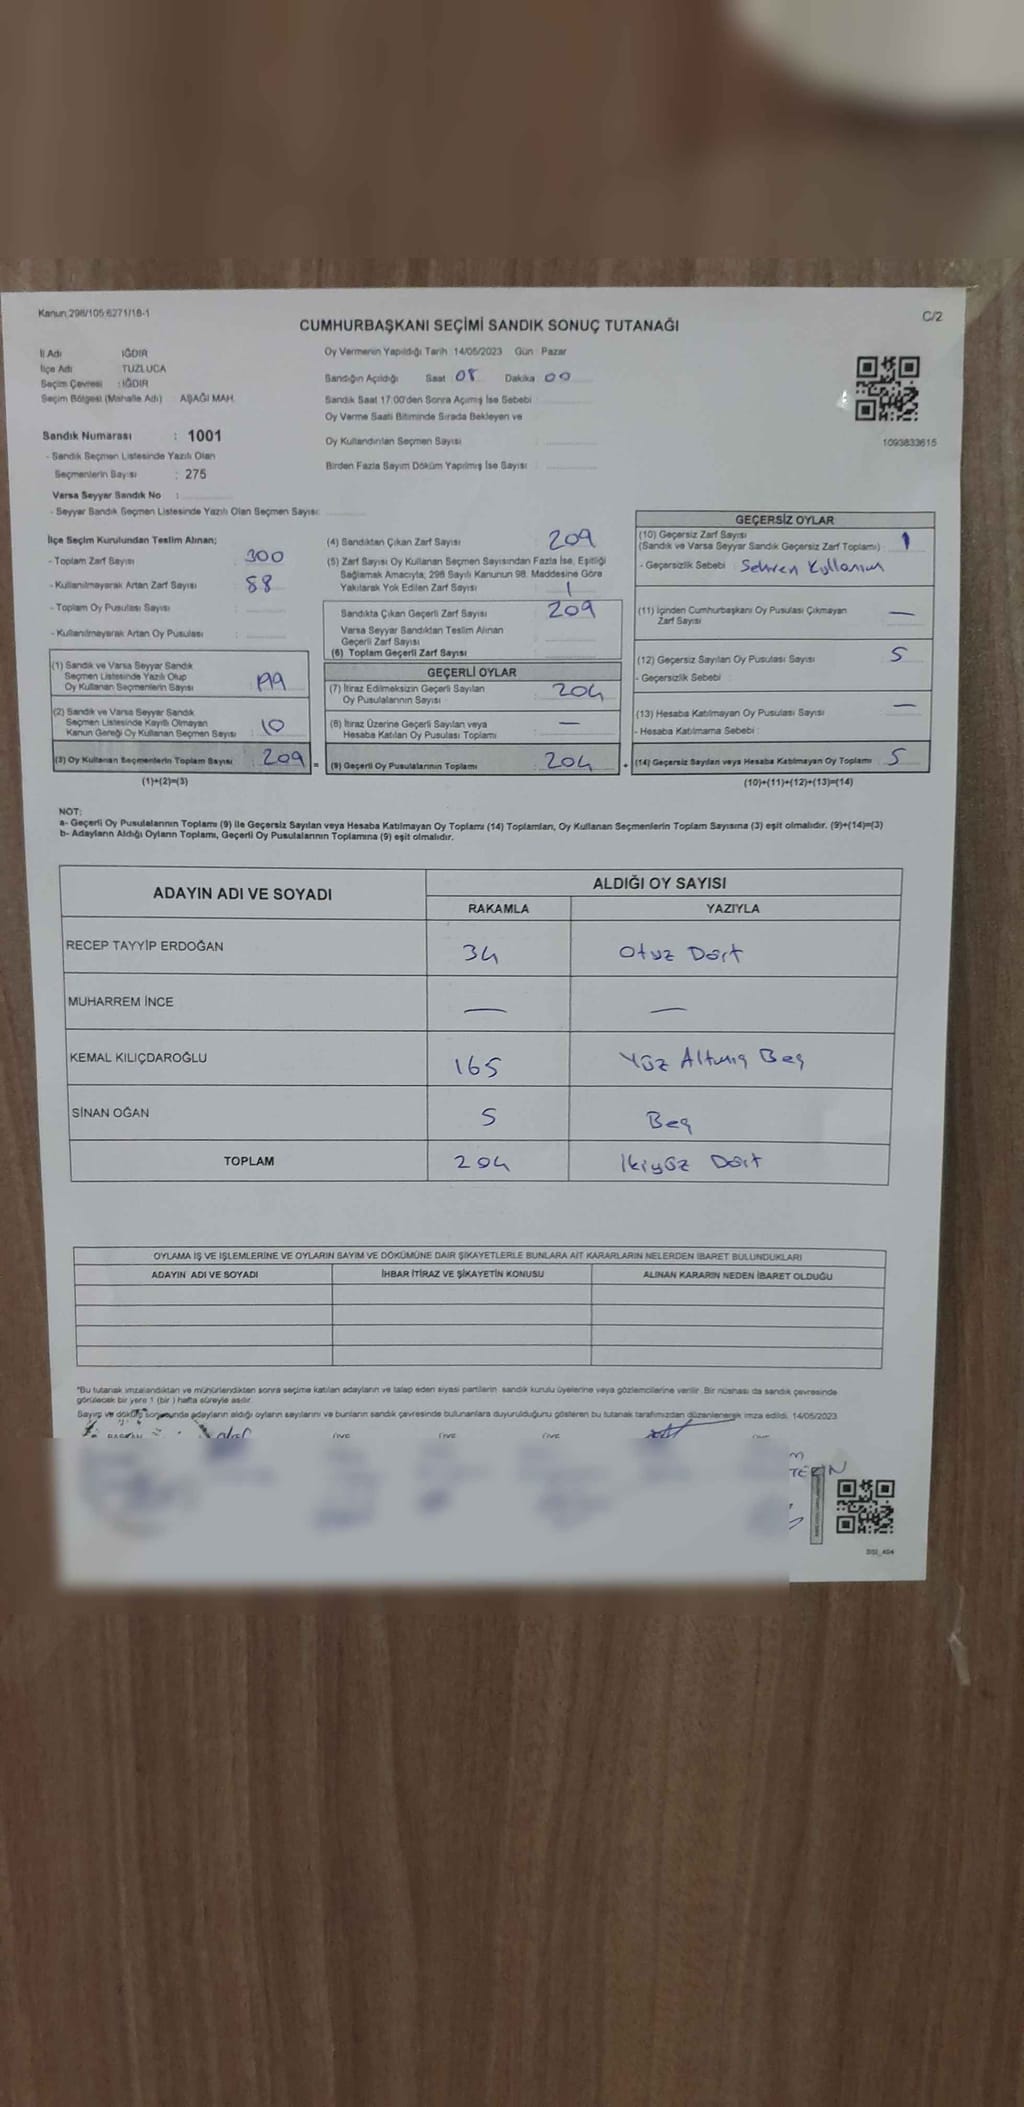 Kanun 298/105 6271/18-1
C/2
CUMHURBAŞKANI SEÇİMİ SANDIK SONUÇ TUTANAĞI
İl Adı : IĞDIR
İlçe Adı : TUZLUCA
Seçim Çevresi : IĞDIR
Seçim Bölgesi (Mahalle Adı) AŞAĞI MAH.
Sandık Numarası : 1001
- Sandık Seçmen Listesinde Yazılı Olan
Seçmenlerin Sayısı : 275
Varsa Seyyar Sandık No :
- Seyyar Sandık Seçmen Listesinde Yazılı Olan Seçmen Sayısı:
Oy Vermenin Yapıldığı Tarih 14/05/2023 Gün Pazar
Sandığın Açıldığı Saat 08 Dakika 00
Sandık Saat 17:00'den Sonra Açımış İse Sebebi :
Oy Verme Saati Bitiminde Sırada Bekleyen ve
Oy Kullandırılan Seçmen Sayısı :
Birden Fazla Sayım Döküm Yapılmış İse Sayısı :
1093833615
İlçe Seçim Kurulundan Teslim Alınan;
- Toplam Zarf Sayısı : 300
- Kullanılmayarak Artan Zarf Sayısı : 88
- Toplam Oy Pusulası Sayısı :
- Kullanılmayarak Artan Oy Pusulası :
(1) Sandık ve Varsa Seyyar Sandık
Seçmen Listesinde Yazılı Olup
Oy Kullanan Seçmenlerin Sayısı : 199
(2) Sandık ve Varsa Seyyar Sandık
Seçmen Listesinde Kayıtlı Olmayan
Kanun Gereği Oy Kullanan Seçmen Sayısı : 10
(3) Oy Kullanan Seçmenlerin Toplam Sayısı : 209 =
(1)+(2)=(3)
(4) Sandıktan Çıkan Zarf Sayısı : 209
(5) Zarf Sayısı Oy Kullanan Seçmen Sayısından Fazla İse, Eşitliği
Sağlamak Amacıyla, 298 Sayılı Kanunun 98. Maddesine Göre
Yakılarak Yok Edilen Zarf Sayısı : 1
Sandıkta Çıkan Geçerli Zarf Sayısı : 209
Varsa Seyyar Sandıktan Teslim Alınan
Geçerli Zarf Sayısı :
(6) Toplam Geçerli Zarf Sayısı :
GEÇERLİ OYLAR
(7) İtiraz Edilmeksizin Geçerli Sayılan
Oy Pusulalarının Sayısı : 204
(8) İtiraz Üzerine Geçerli Sayılan veya
Hesaba Katılan Oy Pusulası Toplamı : —
(9) Geçerli Oy Pusulalarının Toplamı : 204 +
GEÇERSİZ OYLAR
(10) Geçersiz Zarf Sayısı
(Sandık ve Varsa Seyyar Sandık Geçersiz Zarf Toplamı) : 1
- Geçersizlik Sebebi
(11) İçinden Cumhurbaşkanı Oy Pusulası Çıkmayan
Zarf Sayısı : —
(12) Geçersiz Sayılan Oy Pusulası Sayısı : 5
- Geçersizlik Sebebi :
(13) Hesaba Katılmayan Oy Pusulası Sayısı : —
- Hesaba Katılmama Sebebi :
(14) Geçersiz Sayılan veya Hesaba Katılmayan Oy Toplamı : 5
(10)+(11)+(12)+(13)=(14)
NOT:
a- Geçerli Oy Pusulalarının Toplamı (9) ile Geçersiz Sayılan veya Hesaba Katılmayan Oy Toplamı (14) Toplamları, Oy Kullanan Seçmenlerin Toplam Sayısına (3) eşit olmalıdır. (9)+(14)=(3)
b- Adayların Aldığı Oyların Toplamı, Geçerli Oy Pusulalarının Toplamına (9) eşit olmalıdır.
ADAYIN ADI VE SOYADI
ALDIĞI OY SAYISI
RAKAMLA YAZIYLA
RECEP TAYYİP ERDOĞAN 34 Otuz Dört
MUHARREM İNCE — —
KEMAL KILIÇDAROĞLU 165 Yüz Altmış Beş
SİNAN OĞAN 5 Beş
TOPLAM 204 İkiyüz Dört
OYLAMA İŞ VE İŞLEMLERİNE VE OYLARIN SAYIM VE DÖKÜMÜNE DAİR ŞİKAYETLERLE BUNLARA AİT KARARLARIN NELERDEN İBARET BULUNDUKLARI
ADAYIN ADI VE SOYADI İHBAR İTİRAZ VE ŞİKAYETİN KONUSU ALINAN KARARIN NEDEN İBARET OLDUĞU
*Bu tutanak imzalandıktan ve mühürlendikten sonra seçime katılan adayların ve talep eden siyasi partilerin sandık kurulu üyelerine veya gözlemcilerine verilir. Bir nüshası da sandık çevresinde
görülecek bir yere 1 (bir ) hafta süreyle asılır.
Sayım ve döküm sonucunda adayların aldığı oyların sayılarını ve bunların sandık çevresinde bulunanlara duyurulduğunu gösteren bu tutanak tarafımızdan düzenlenerek imza edildi. 14/05/2023
BAŞKAN ÜYE ÜYE ÜYE ÜYE